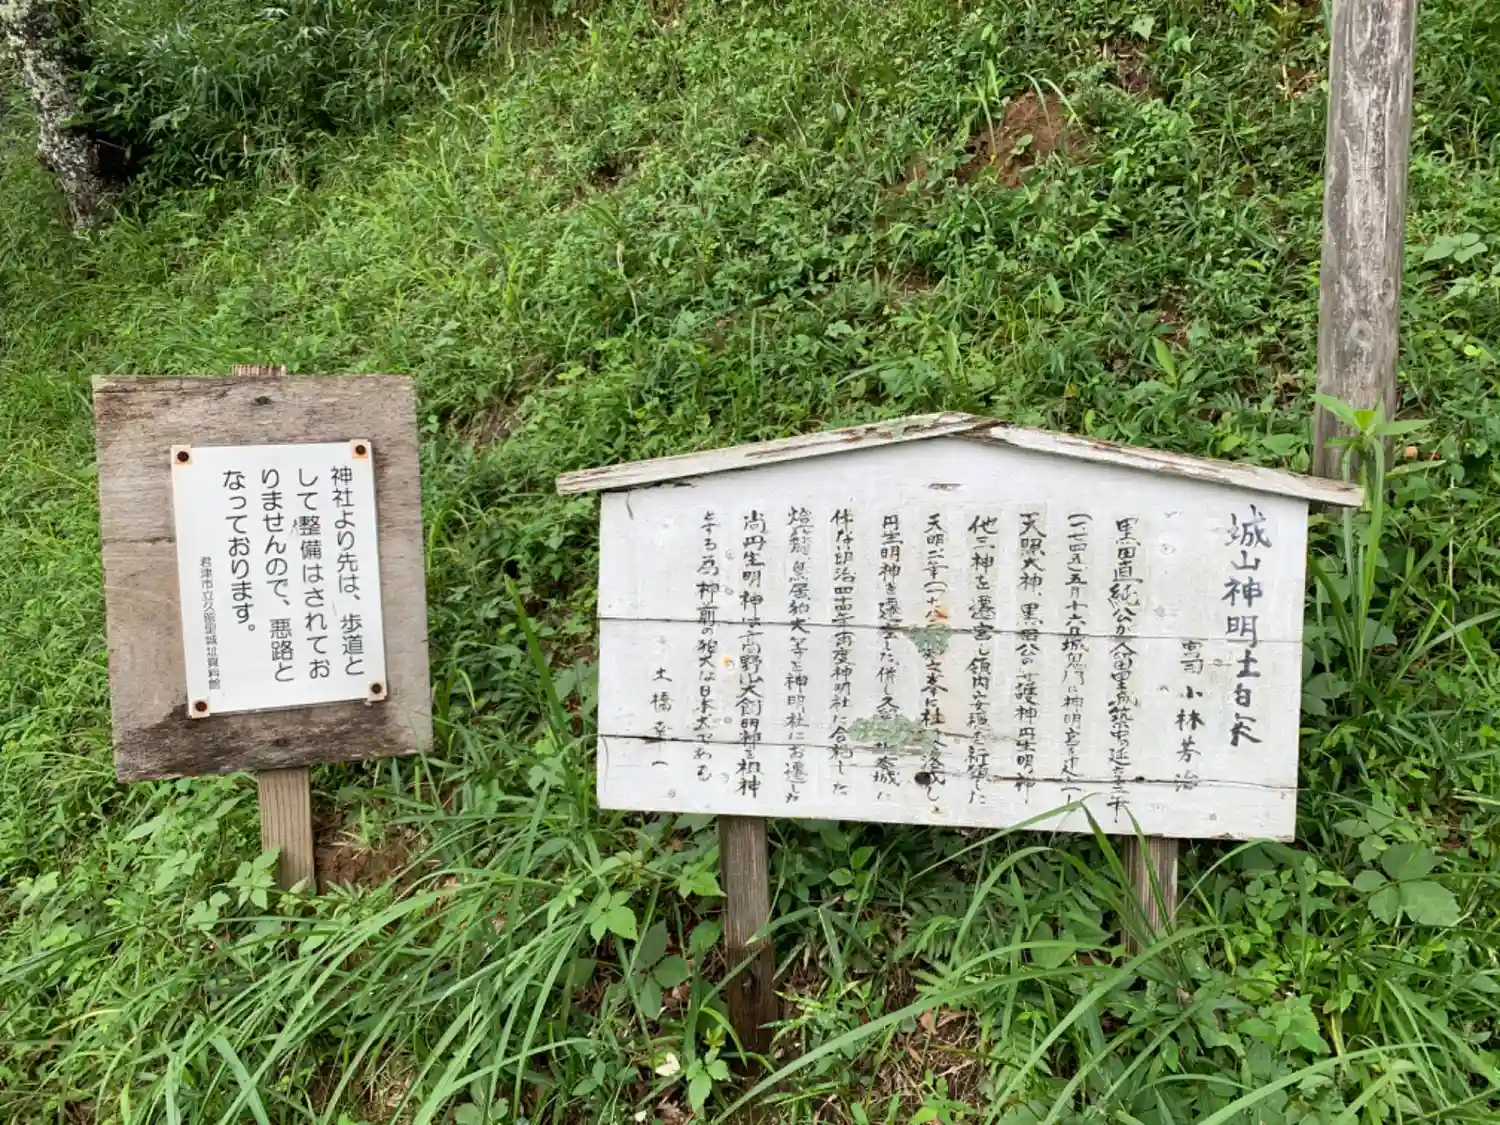 神社より先は、歩道と
して整備はされてお
りませんので、悪路と
なっております。
君津市立久留里城址資料館
城山神明土白突
宮司 小林芳治
黒田直純公が久留里城築城の延享二年
(一七四五)五月十六日城内に神明宮を
天照大神、黒田公の守護神丹生明神
他三神を遷宮し領内安穏を祈願した
天明二年(一七八
丹生明神を遷宮した併し久留里城廃城に
伴ない明治四十四年再度神明社に合祀した
燈籠、鳥居狛犬等を神明社にお遷した
尚丹生明神は高野山大創明神を祖神
とする為神前の狛犬は日本犬である
土橋幸一